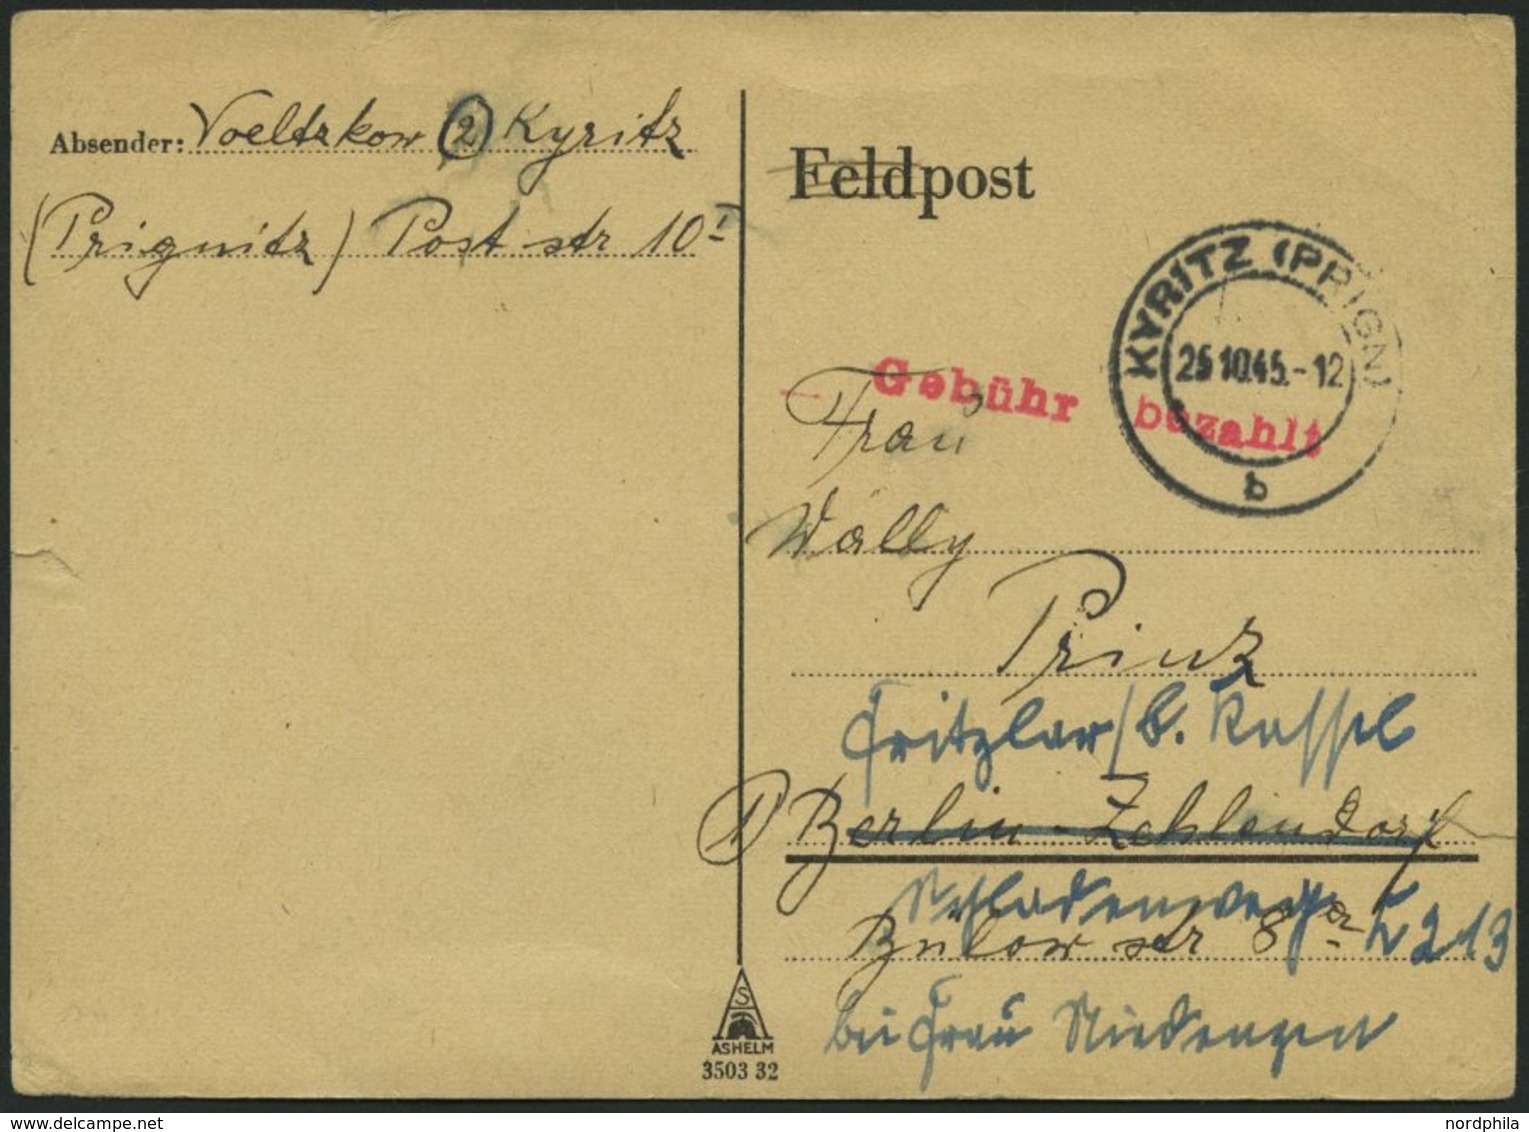 Absender: Voeltzkow (2) Kyritz
(Prignitz) Post str 10 I
Feldpost
KYRITZ (PRIGN)
25.10.45.-12
b
Gebühr bezahlt
Frau
Wally
Prinz
Fritzlar / b. Kassel
(1) Berlin-Zehlendorf
Bülow str 8
213
bei Frau
ASHELM
3503 32
www.delcampe.net
nordphila